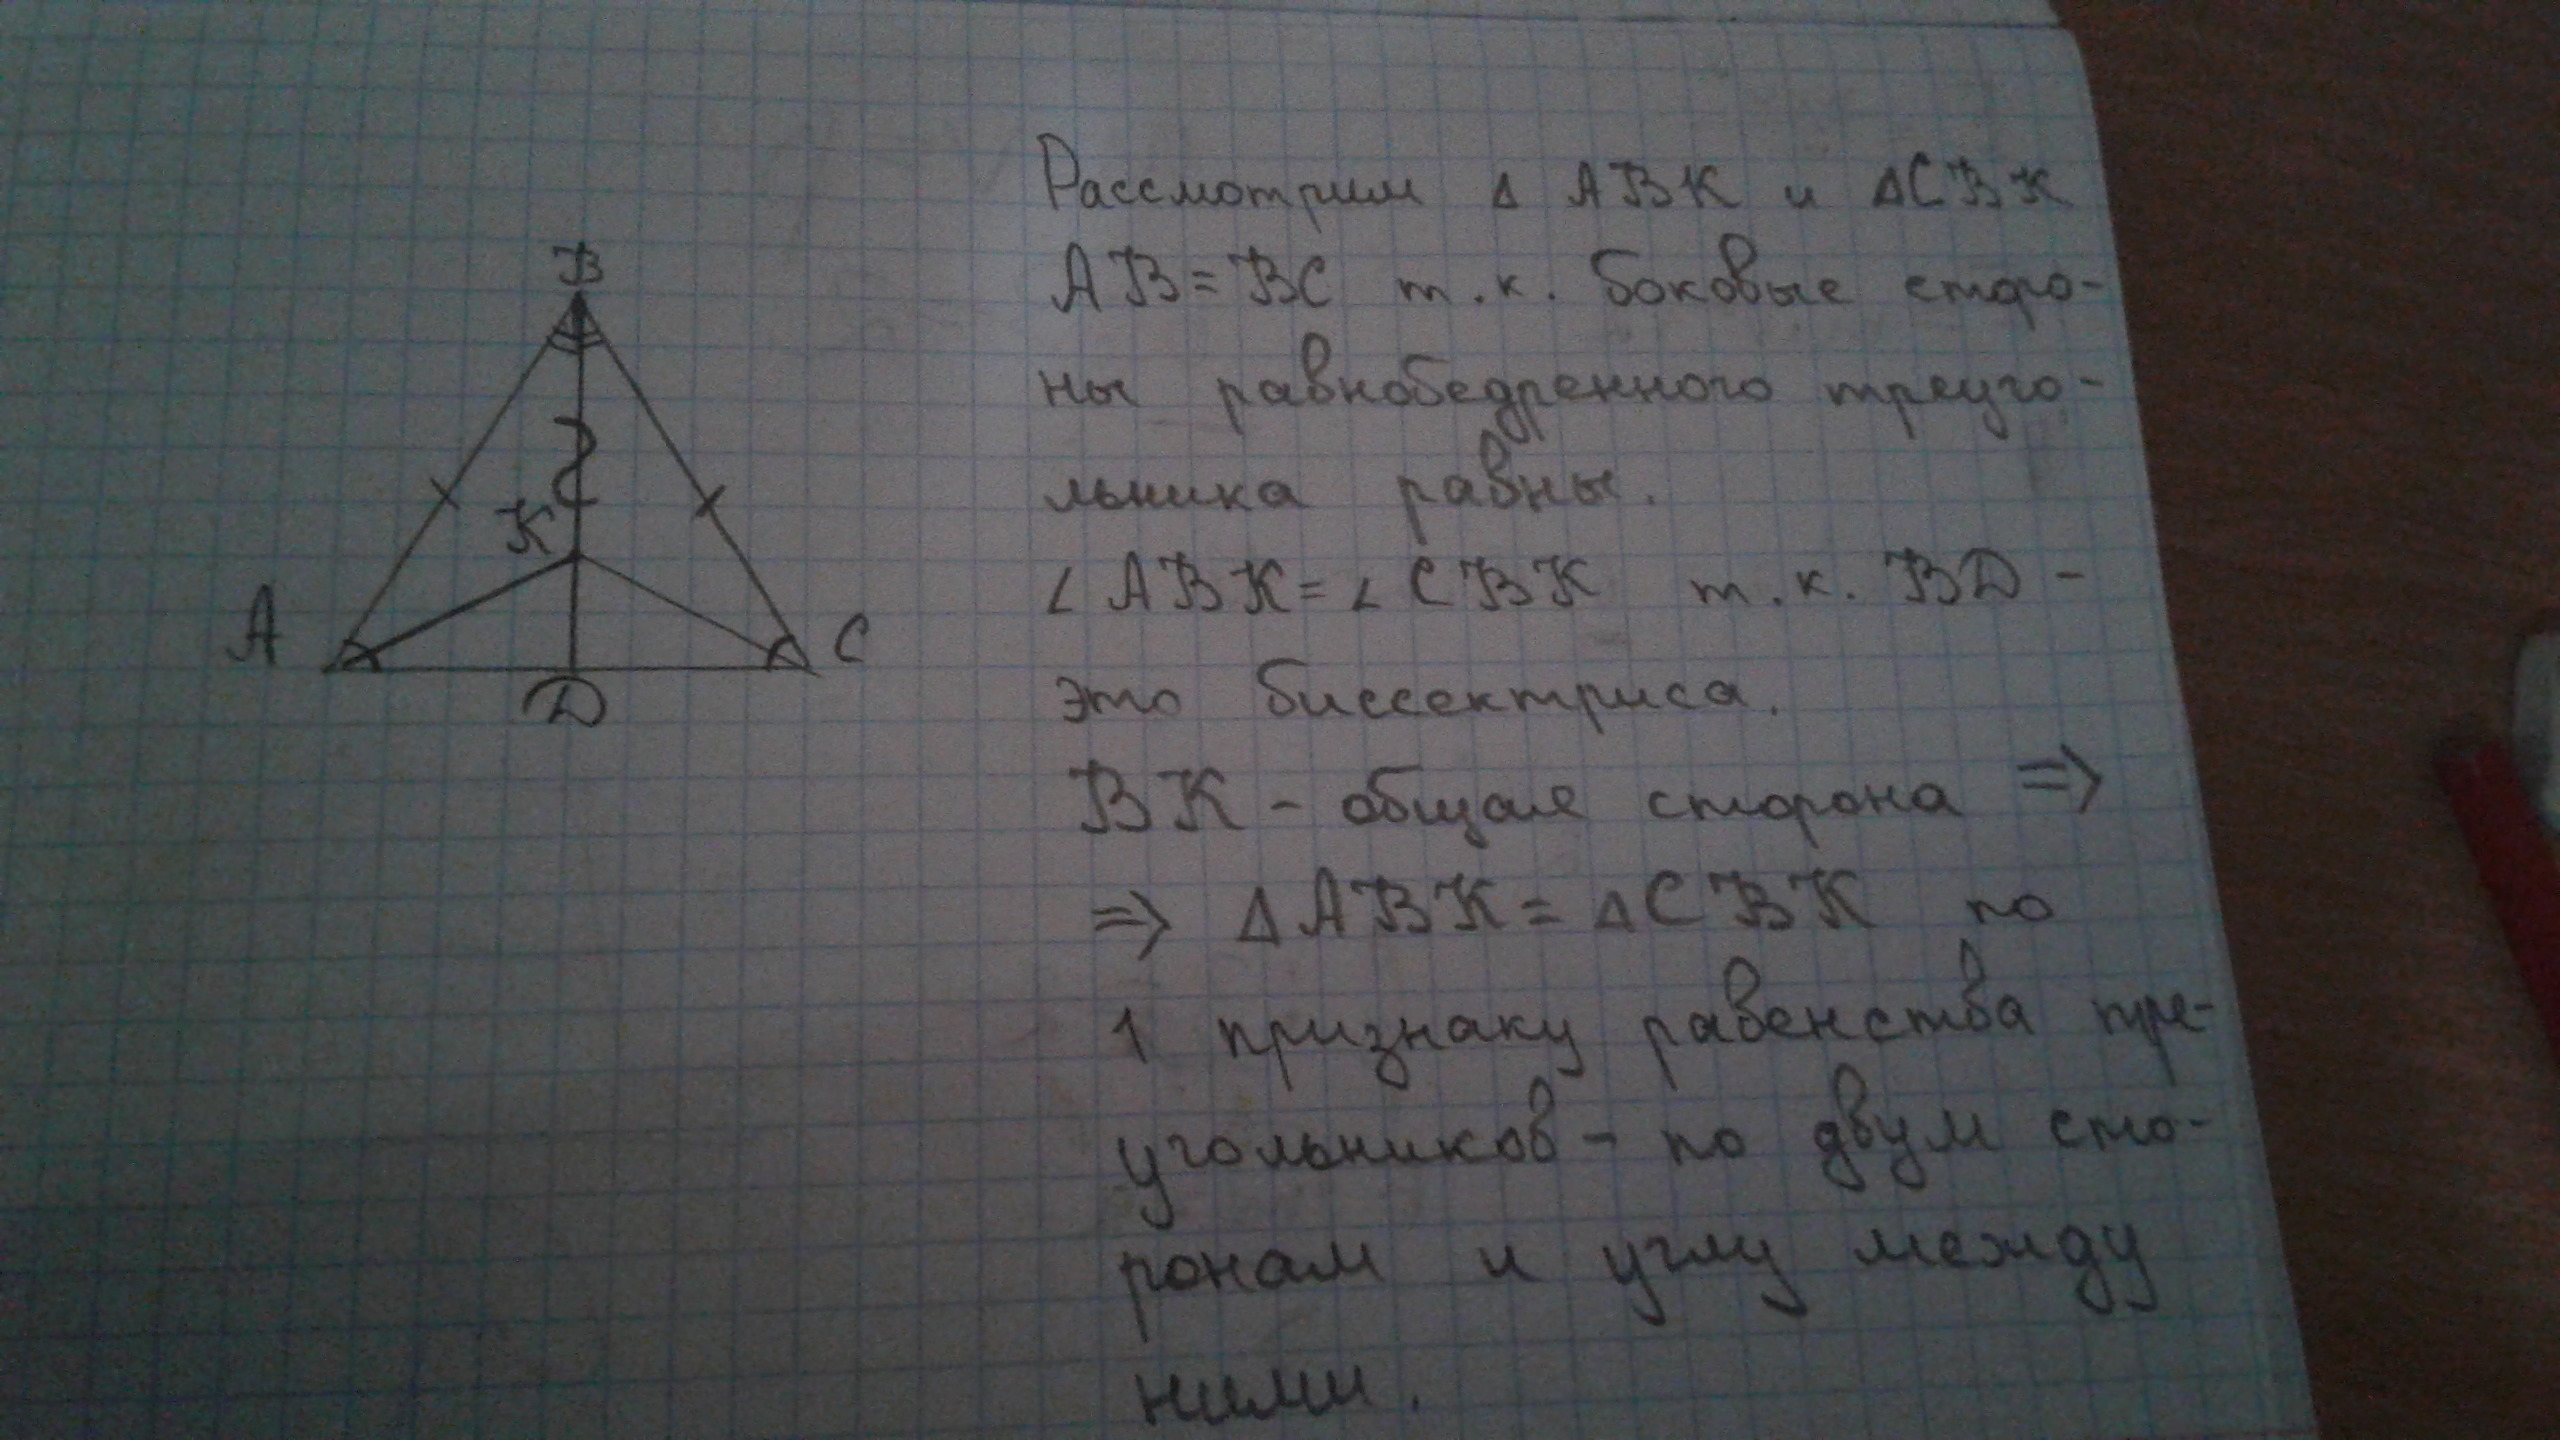 B
K
A
C
D
Рассмотрим Δ ABK и ΔCBK
AB = BC т.к. боковые сторо-
ны равнобедренного треуго-
льника равны.
∠ABK = ∠CBK т.к. BD -
это биссектриса.
BK - общая сторона ⇒
⇒ ΔABK = ΔCBK по
1 признаку равенства тре-
угольников - по двум сто-
ронам и углу между
ними.